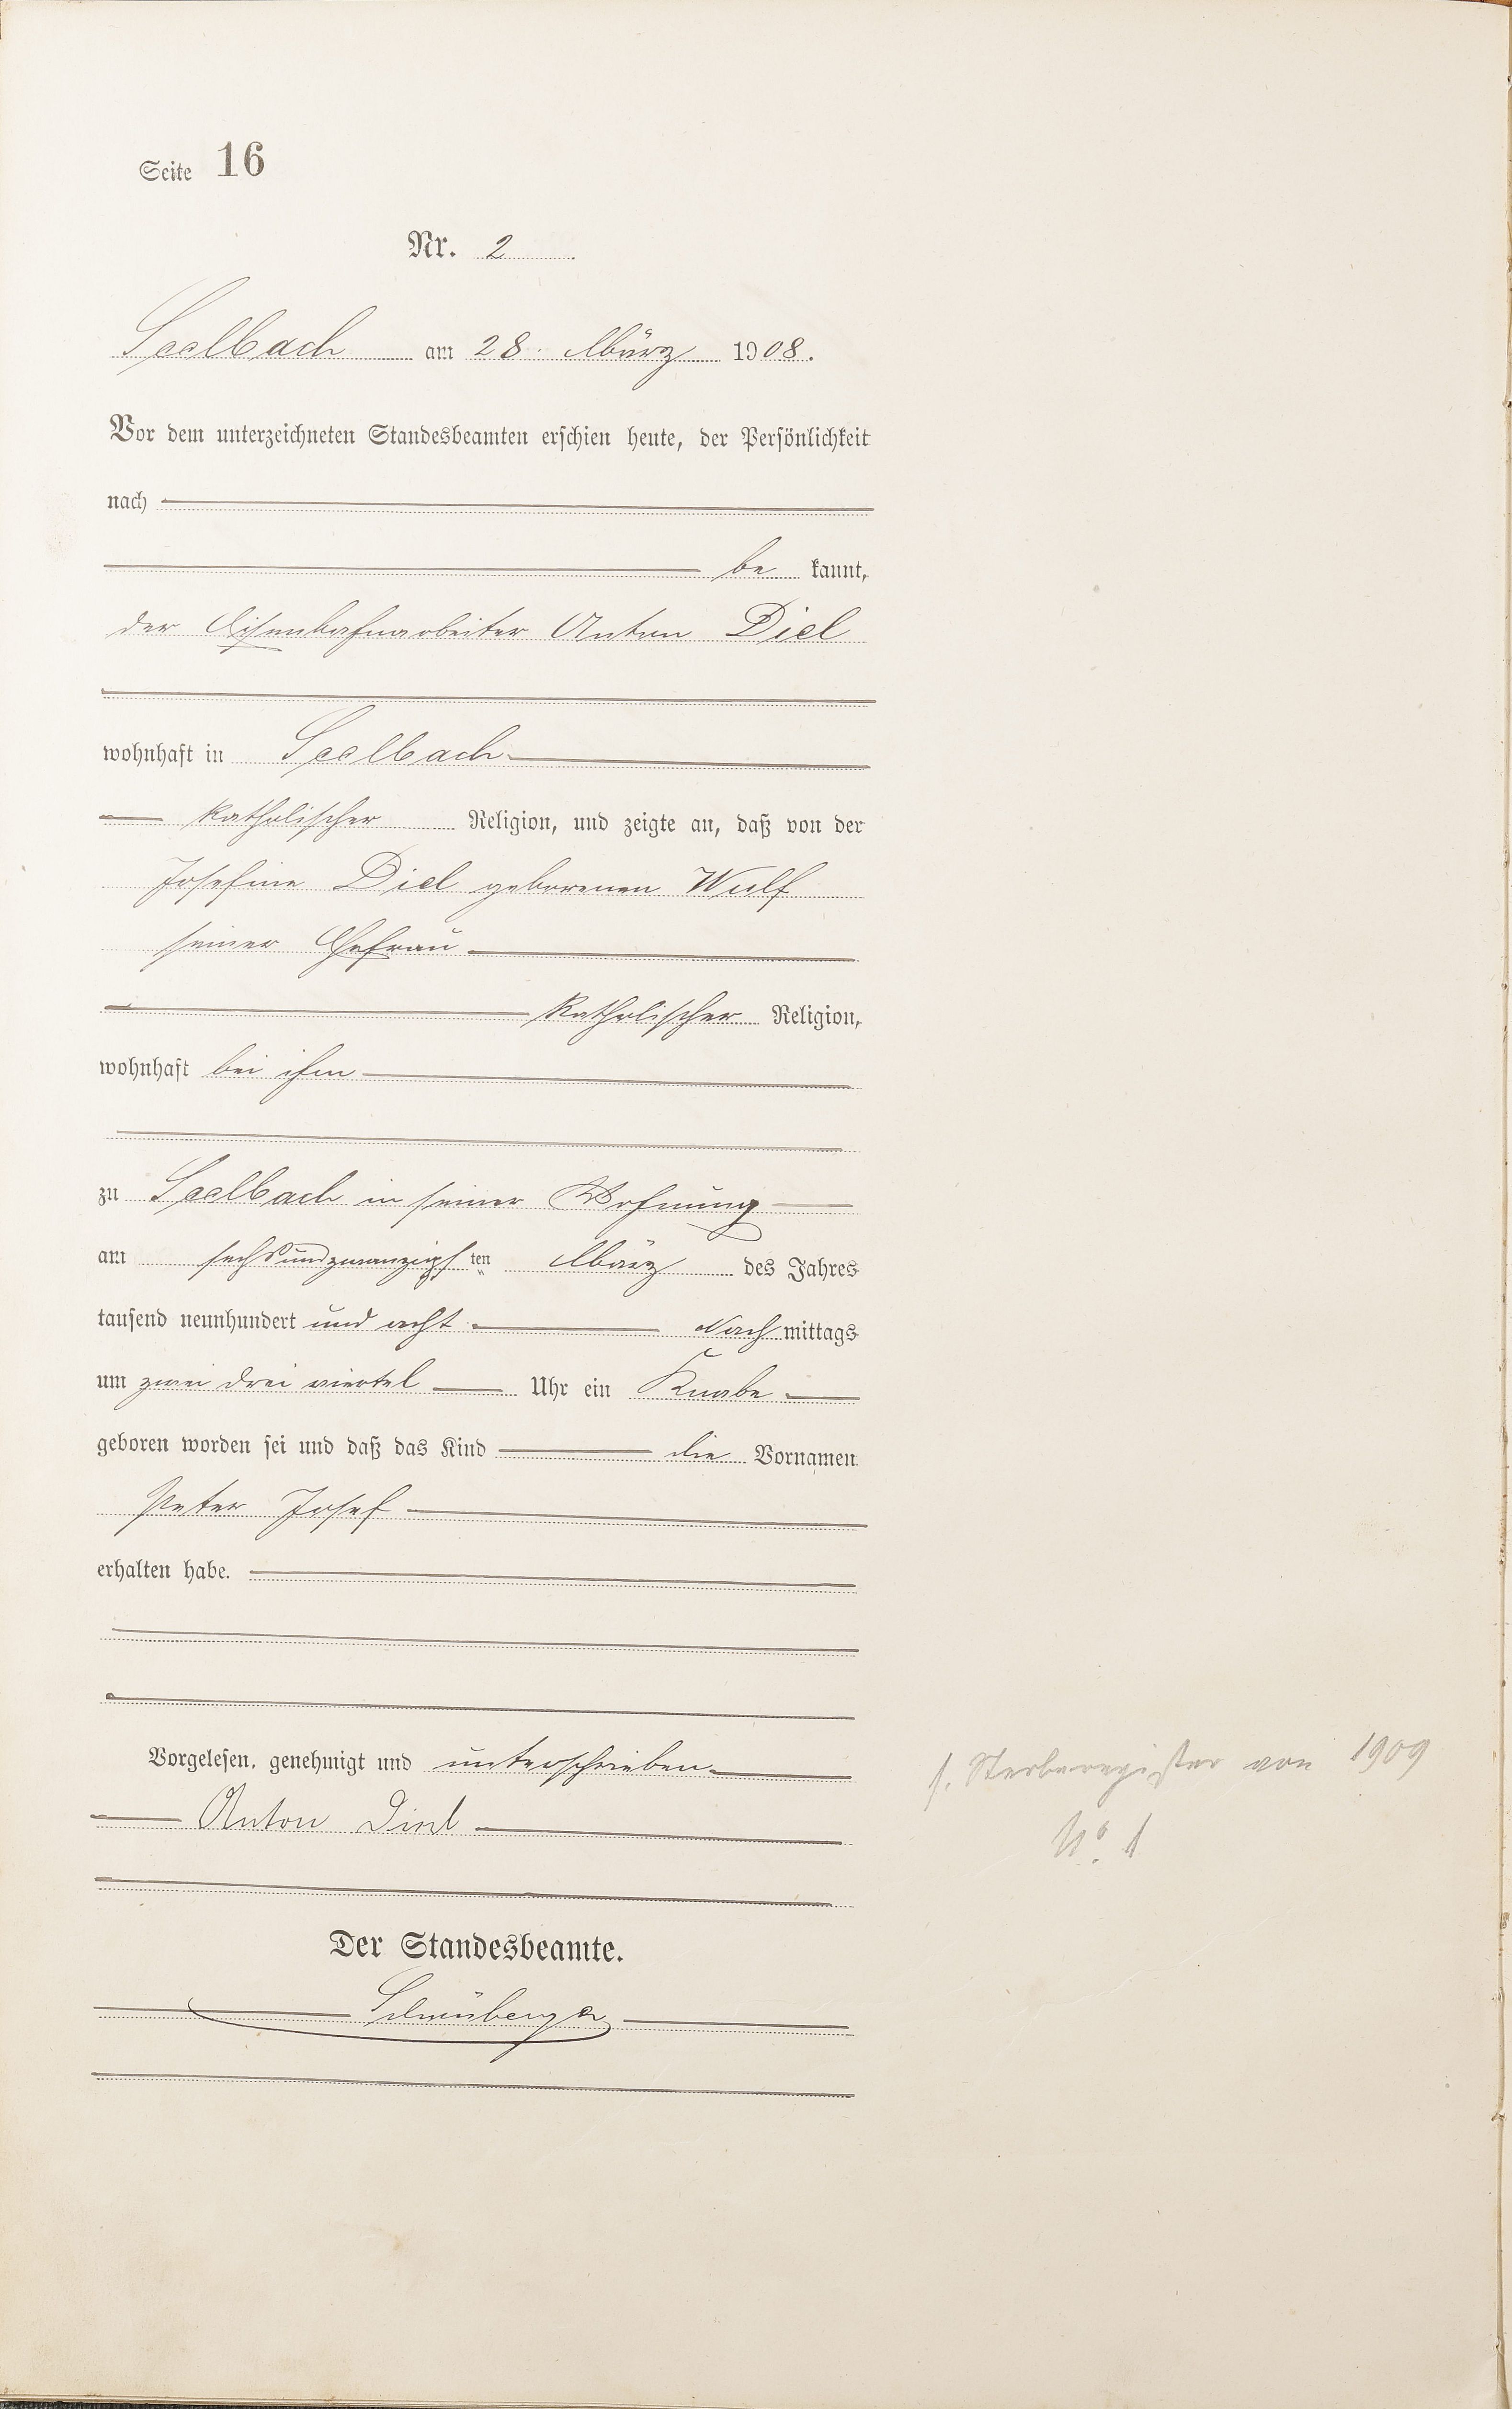 Seite 16
Nr. 2
Seelbach am 28. März 1908.
Vor dem unterzeichneten Standesbeamten erschien heute, der Persönlichkeit
nach
be kannt,
der Eisenbahnarbeiter Anton Diel
wohnhaft in Seelbach
katholischer Religion, und zeigte an, daß von der
Josefine Diel geborenen Wulf
seiner Ehefrau
katholischer Religion,
wohnhaft bei ihm
zu Seelbach in seiner Wohnung
am sechsundzwanzigsten März des Jahres
tausend neunhundert und acht Nachmittags
um zwei drei viertel Uhr ein Knabe
geboren worden sei und daß das Kind die Vornamen
Peter Josef
erhalten habe.
Vorgelesen, genehmigt und unterschrieben
Anton Diel
s. Sterberegister von 1909
No. 1
Der Standesbeamte.